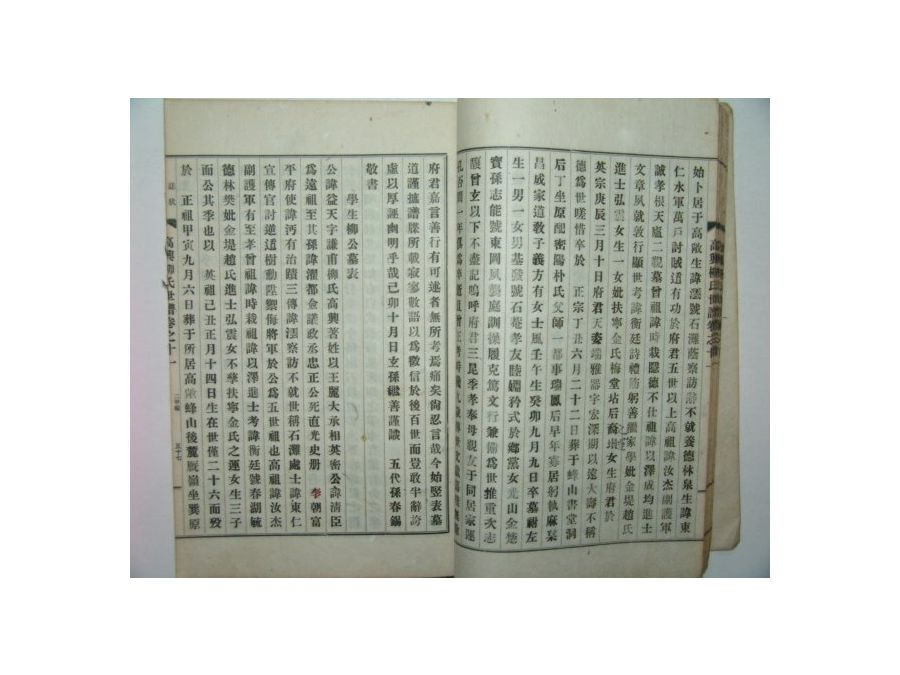 始卜居于高敞生諱澐號石灘蔭察訪不就養德林泉生諱東
仁水軍萬戶討賊道有功於府君五世以上高祖諱汝杰副護軍
誠孝根天廬二親墓曾祖諱時栽隱德不仕祖諱以澤成均進士
文章夙就敦行顯世考諱衡廷詩禮
進士弘震女生一女妣扶寧金氏梅堂坫后 女生府君於
英宗庚辰三月十日府君天姿端雅器宇宏深期以遠大壽不稱
德爲世嗟惜卒於 正宗丁 六月二十二日葬于蜂山書堂洞
后丁坐原配密陽朴氏父師一都事瑞鳳后早年寡居躬執麻枲
昌成家道敎子義方有女士風壬午生癸卯九月九日卒墓祔左
生一男一女男基發號石菴孝友睦婣矜式於鄕黨女光山金
寶孫志能號東岡夙襲庭訓操履克篤文行兼備爲世推重次志
曾玄以下不盡記嗚呼府君三昆季孝奉母親友于長居家
府君嘉言善行有可述者無所考焉痛矣尙忍言哉今始竪表墓
道謹據譜牒所載寂寥數語以爲徵信於後百世而豈敢半辭誇
虛以厚誣幽明乎哉己卯十月日玄孫繼善謹識 五代孫春錫
敬書
學生柳公墓表
公諱益天字謙甫柳氏高興著姓以王麗大丞相英密公諱淸臣
爲遠祖至其孫諱濯都僉議政丞忠正公死直光史册 李朝富
平府使諱沔有治蹟三傳諱澐察訪不就世稱石灘處士諱東仁
宣傳官討逆适樹動陞禦侮將軍於公爲五世祖也高祖諱汝杰
副護軍有至孝曾祖諱時栽祖諱以澤進士考諱衡廷號春湖毓
德林樊妣金堤趙氏進士弘震女不擧扶寧金氏之運女生三子
而公其季也以 英祖己丑正月十四日生在世僅二十六而歿
於 正祖甲寅九月六日葬于所居高敞蜂山後麓 嶺坐巽原
誌狀
高興柳氏世譜卷之十一
五十七